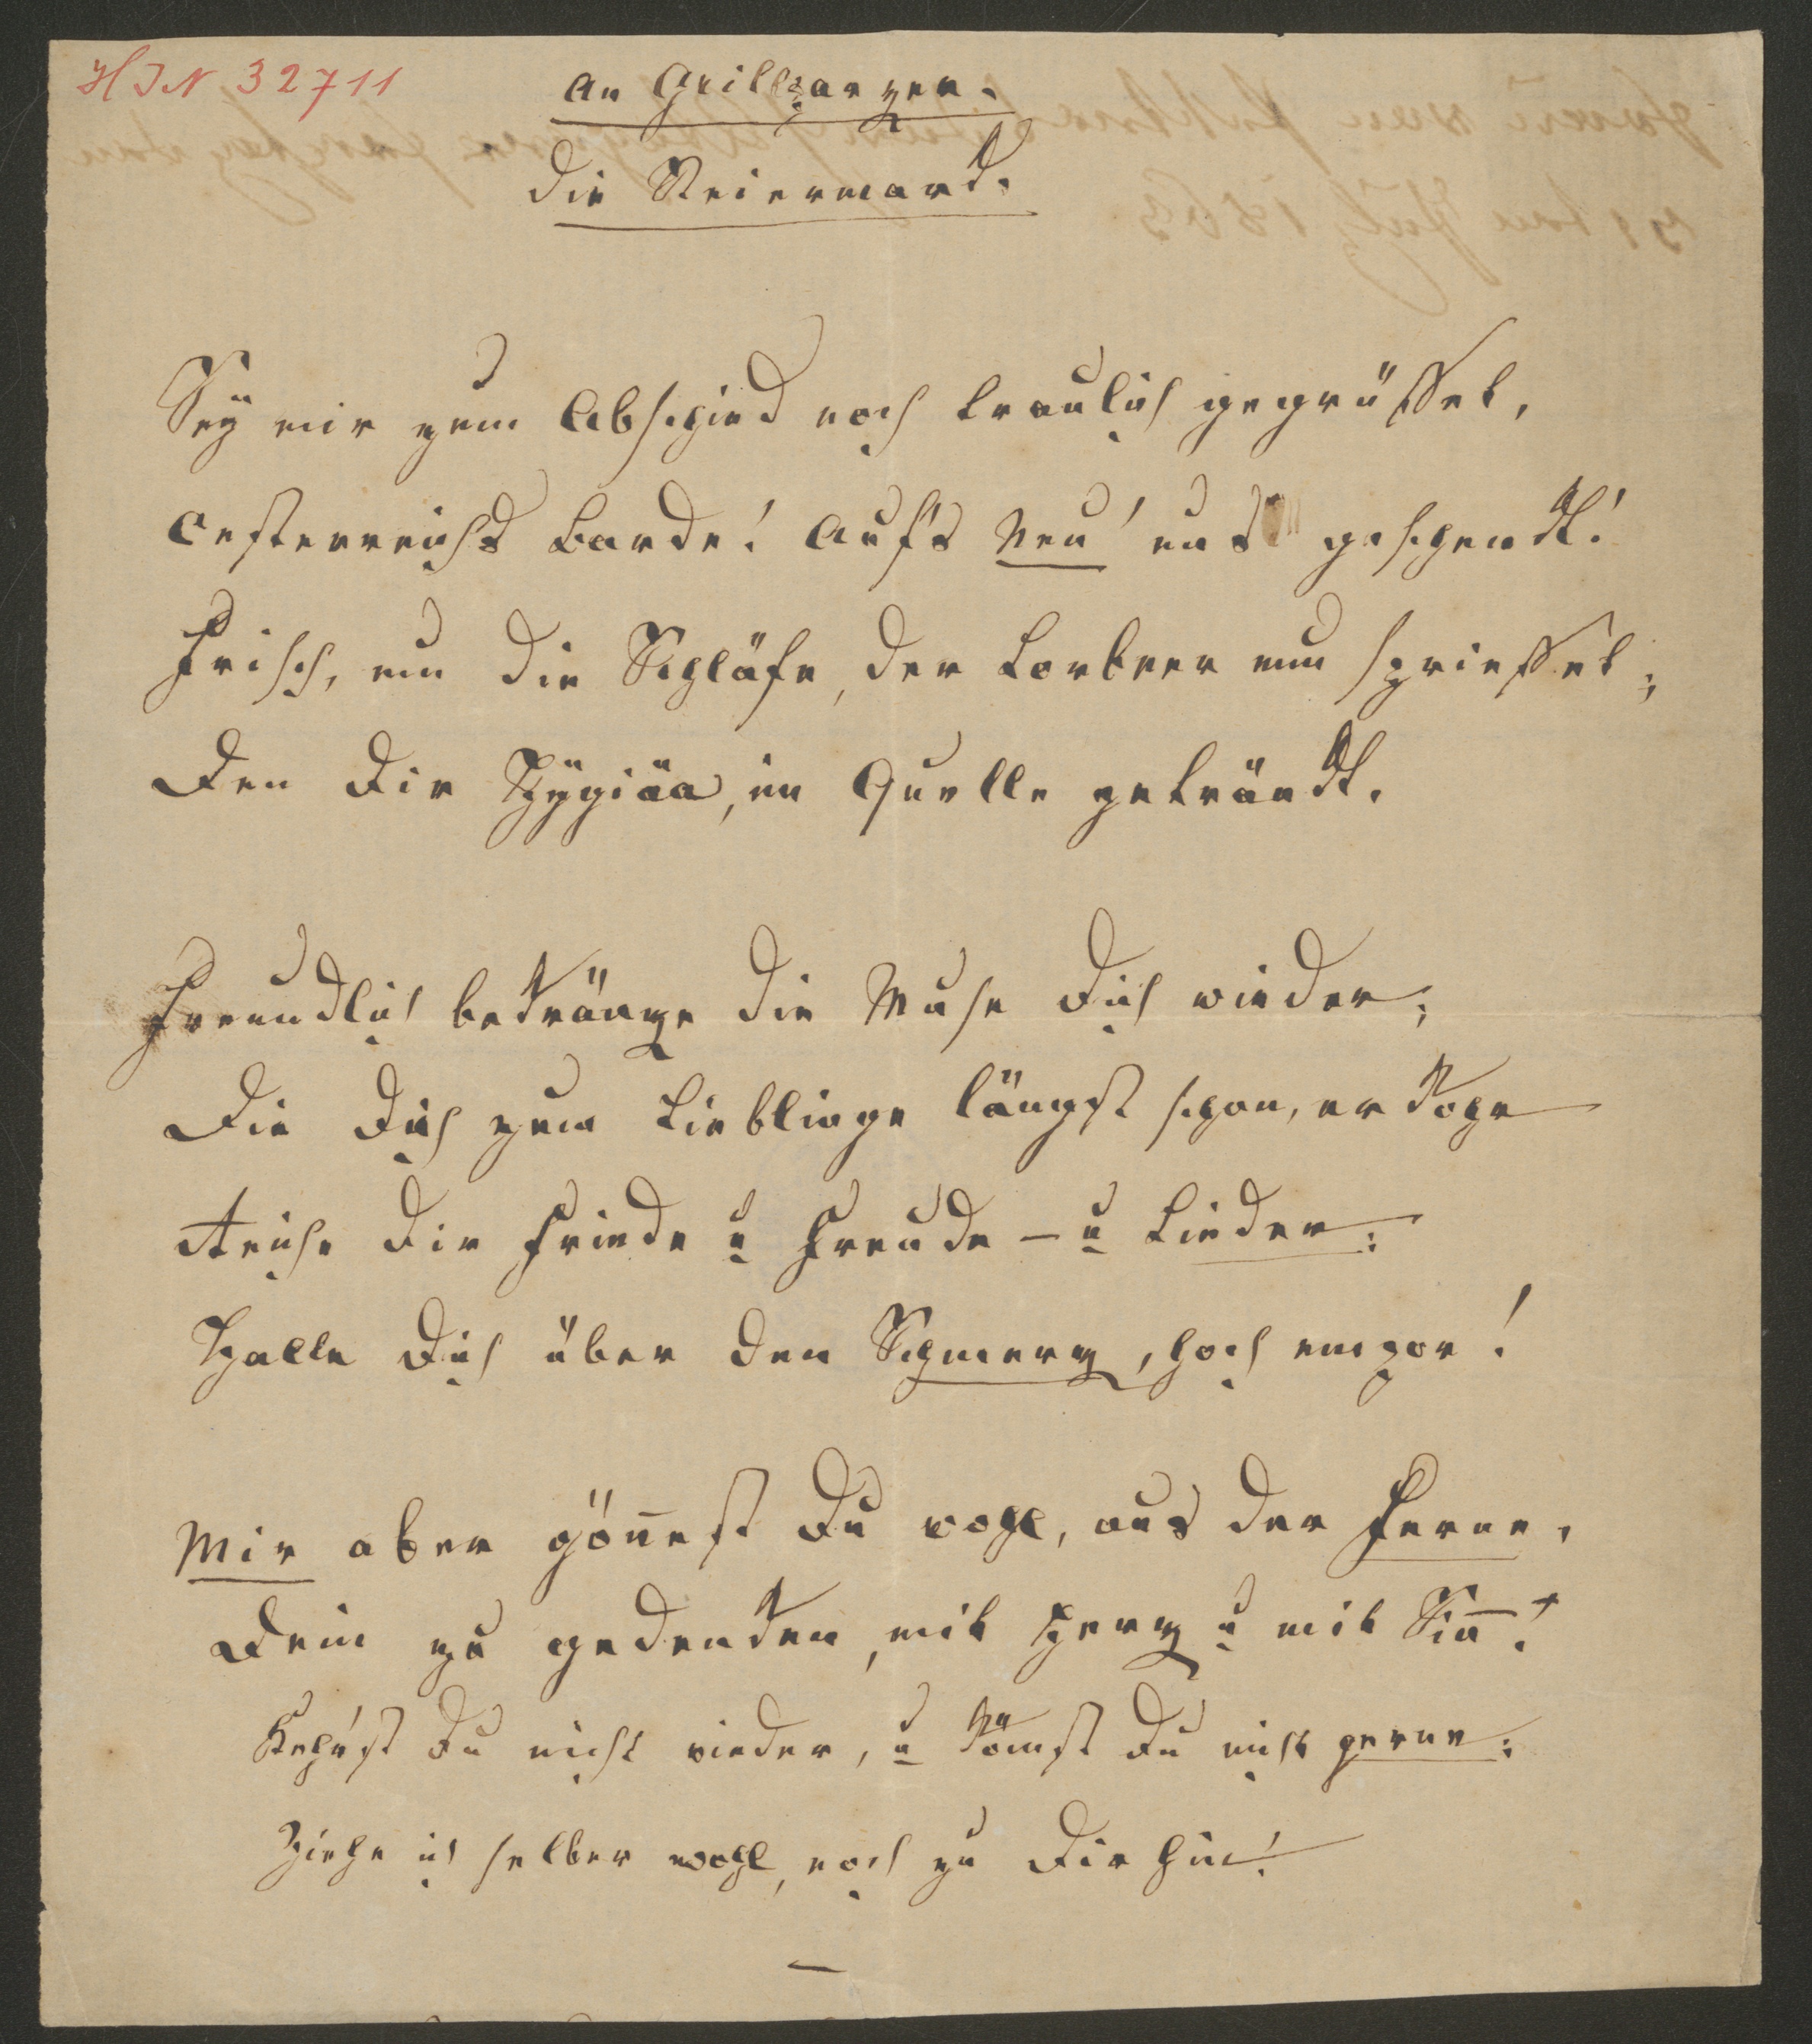 HIN 32711
An Grillparzer.
Die Steiermark.
Sey mir zum Abschied noch traulich gegrüsset,
Oesterreichs Barde! Auf's Neu' uns geschenkt!
Frisch, um die Schläfe, der Lorbeer nun spriesset;
Den Dir Hygiäa, im Quelle getränkt.
Freundlich bekränze die Muse Dich wieder;
Die Dich zum Lieblinge längst schon, erkohr
Reiche Dir Friede u Freude – u Lieder:
Halte Dich über den Schmerz, hoch empor!
Mir aber gönnest Du wohl, aus der Ferne,
Dein zu gedenken, mit Herz u mit Sin̅!
Kehrst Du nicht wieder, u kömst Du nicht gerne:
Ziehe ich selber wohl, noch zu Dir hin!
—